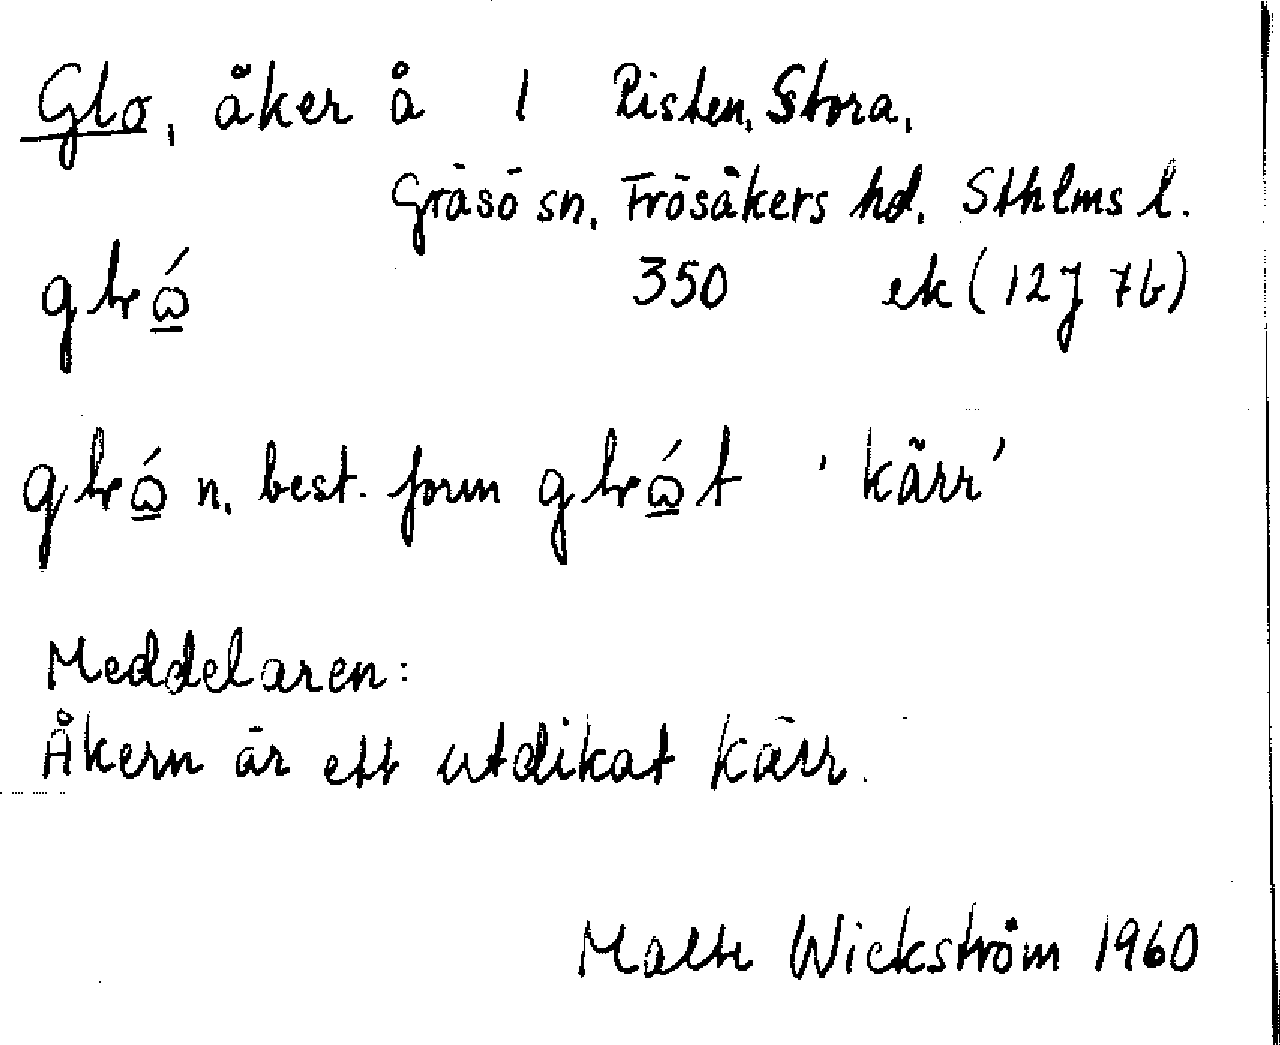 Glo, åker å 1 Risten, Stora,
Gräsö sn, Frösåkers hd. Sthlms l.
350 ek (12J 7b)
n. best. form 'kärr'
Meddelaren:
Åkern är ett utdikat kärr.
Malte Wickström 1960